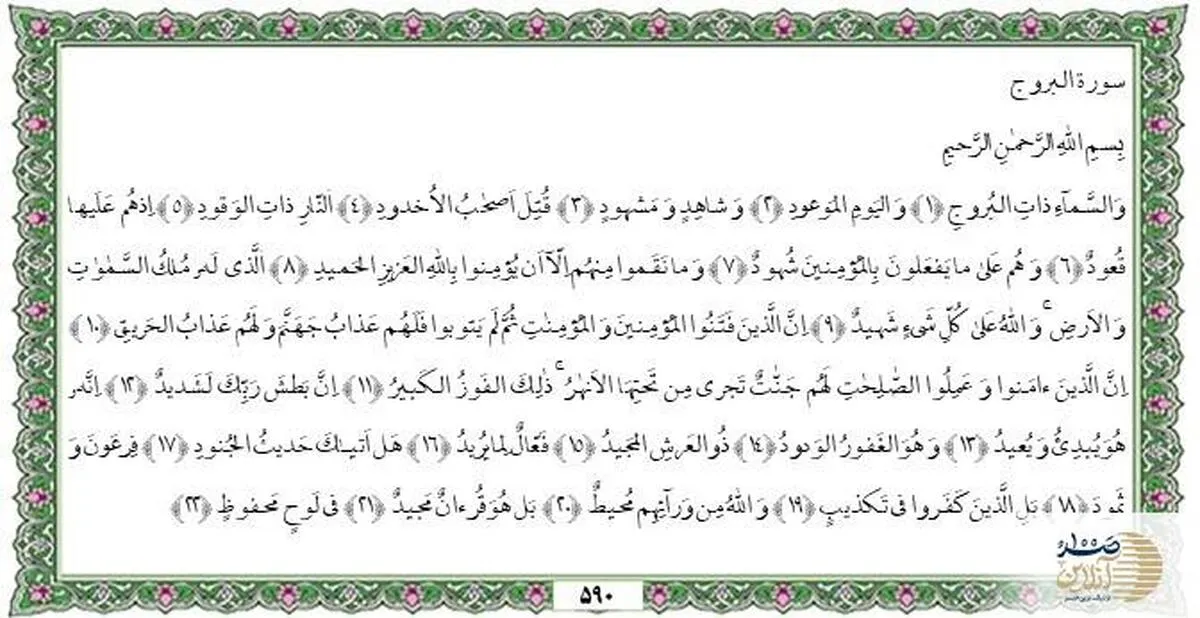 سورة البروج
بِسمِ اللهِ الرَّحمٰنِ الرَّحيمِ
وَالسَّمآءِ ذاتِ البُروجِ ﴿١﴾ وَ اليَومِ المَوعودِ ﴿٢﴾ وَ شاهِدٍ وَ مَشهودٍ ﴿٣﴾ قُتِلَ اَصحٰبُ الاُخدودِ ﴿٤﴾ اَلنّارِ ذاتِ الوَقودِ ﴿٥﴾ اِذهُم عَلَيها
قُعودٌ ﴿٦﴾ وَ هُم عَلىٰ ما يَفعَلونَ بِالمُؤمِنينَ شُهودٌ ﴿٧﴾ وَ ما نَقَموا مِنهُم اِلّآ اَن يُؤمِنوا بِاللهِ العَزيزِ الحَميدِ ﴿٨﴾ اَلَّذى لَهو مُلكُ السَّمٰوٰتِ
وَ الاَرضِ ۚ وَ اللهُ عَلىٰ كُلِّ شَىءٍ شَهيدٌ ﴿٩﴾ اِنَّ الَّذينَ فَتَنُوا المُؤمِنينَ وَ المُؤمِنٰتِ ثُمَّ لَم يَتوبوا فَلَهُم عَذابُ جَهَنَّمَ وَ لَهُم عَذابُ الحَريقِ ﴿١٠﴾
اِنَّ الَّذينَ ءامَنوا وَ عَمِلُوا الصّٰلِحٰتِ لَهُم جَنّٰتٌ تَجرى مِن تَحتِهَا الاَنهٰرُ ۚ ذٰلِكَ الفَوزُ الكَبيرُ ﴿١١﴾ اِنَّ بَطشَ رَبِّكَ لَشَديدٌ ﴿١٢﴾ اِنَّهو
هُوَ يُبدِئُ وَ يُعيدُ ﴿١٣﴾ وَ هُوَ الغَفورُ الوَدودُ ﴿١٤﴾ ذُو العَرشِ المَجيدُ ﴿١٥﴾ فَعّالٌ لِما يُريدُ ﴿١٦﴾ هَل اَتىٰكَ حَديثُ الجُنودِ ﴿١٧﴾ فِرعَونَ وَ
ثَمودَ ﴿١٨﴾ بَلِ الَّذينَ كَفَروا فى تَكذيبٍ ﴿١٩﴾ وَ اللهُ مِن وَرآئِهِم مُحيطٌ ﴿٢٠﴾ بَل هُوَ قُرءانٌ مَجيدٌ ﴿٢١﴾ فى لَوحٍ مَحفوظٍ ﴿٢٢﴾
صدا
آنلاین
۵۹۰